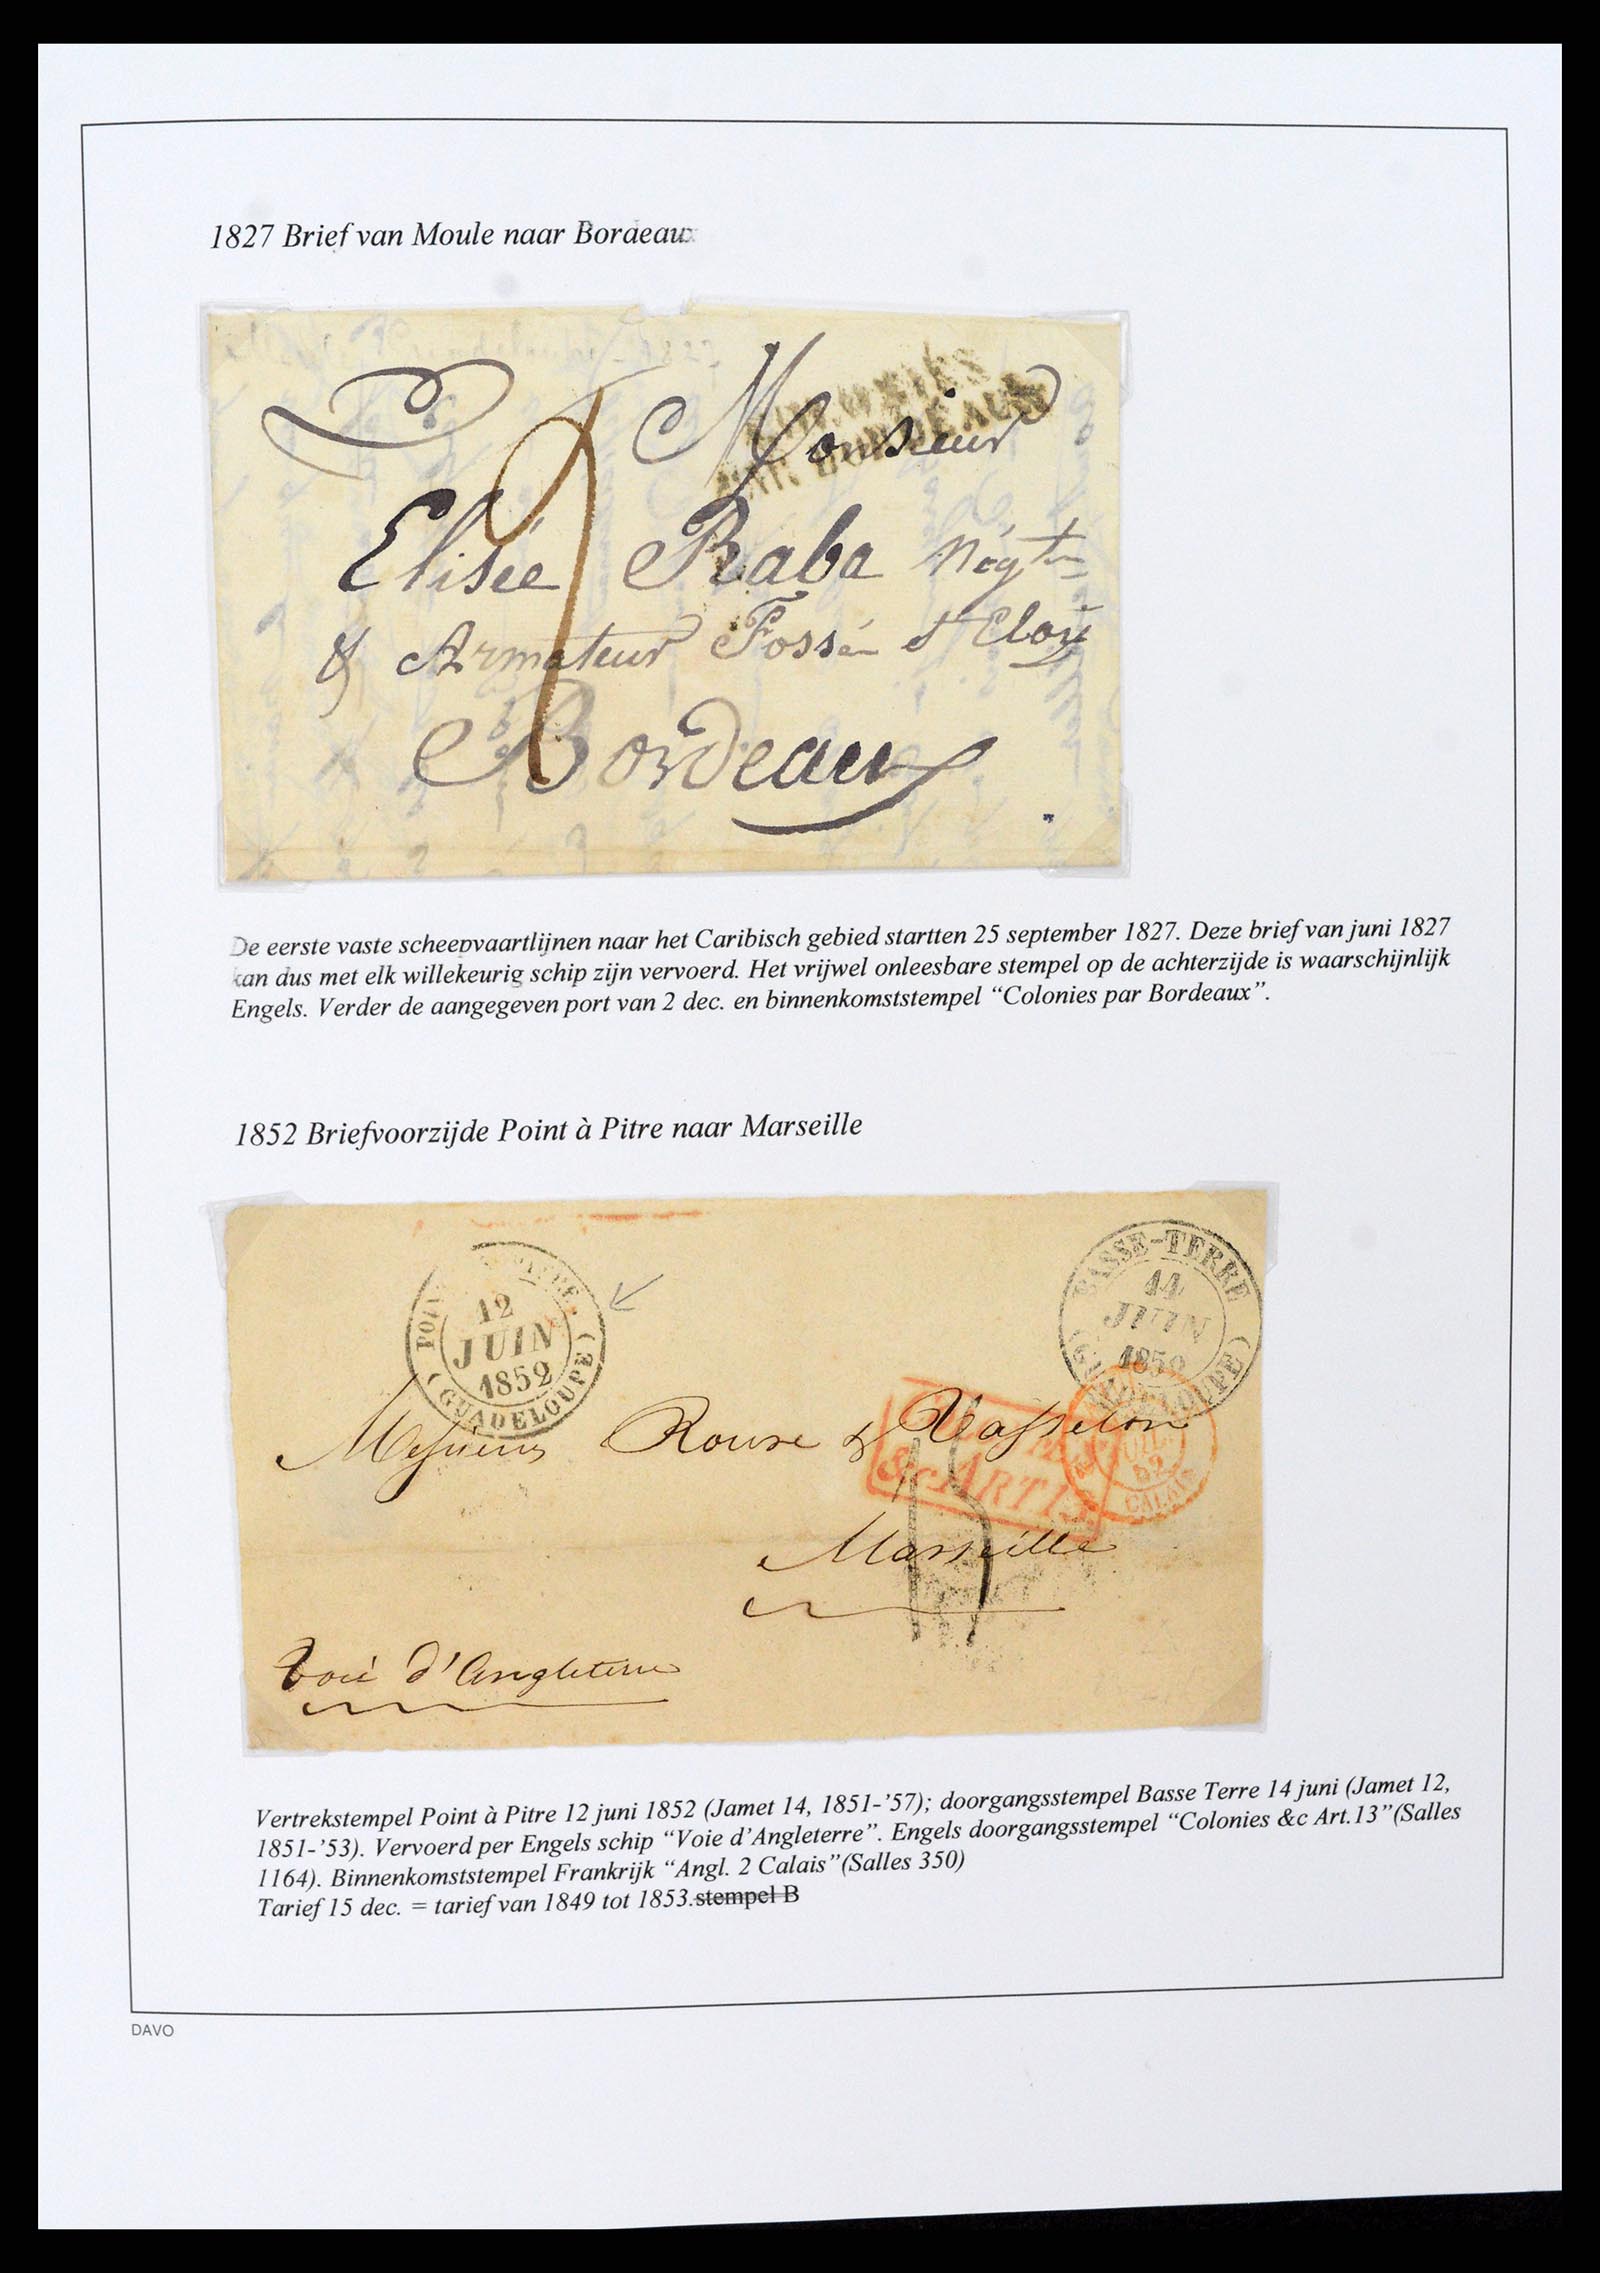 1827 Brief van Moule naar Bordeaux
COLONIES
PAR BORDEAUX
Monsieur
Elisée Raba Négt
& Armateur Fossé St Eloy
Bordeaux
De eerste vaste scheepvaartlijnen naar het Caribisch gebied startten 25 september 1827. Deze brief van juni 1827
kan dus met elk willekeurig schip zijn vervoerd. Het vrijwel onleesbare stempel op de achterzijde is waarschijnlijk
Engels. Verder de aangegeven port van 2 dec. en binnenkomststempel “Colonies par Bordeaux”.
1852 Briefvoorzijde Point à Pitre naar Marseille
12
JUIN
1852
(GUADELOUPE)
BASSE-TERRE
14
JUIN
1852
&c ART 13.
CALAIS
Messieurs Rouse & Vasselon
15
Marseille
Voie d'Angleterre
Vertrekstempel Point à Pitre 12 juni 1852 (Jamet 14, 1851-’57); doorgangsstempel Basse Terre 14 juni (Jamet 12,
1851-’53). Vervoerd per Engels schip “Voie d’Angleterre”. Engels doorgangsstempel “Colonies &c Art.13”(Salles
1164). Binnenkomststempel Frankrijk “Angl. 2 Calais”(Salles 350)
Tarief 15 dec. = tarief van 1849 tot 1853.stempel B
DAVO